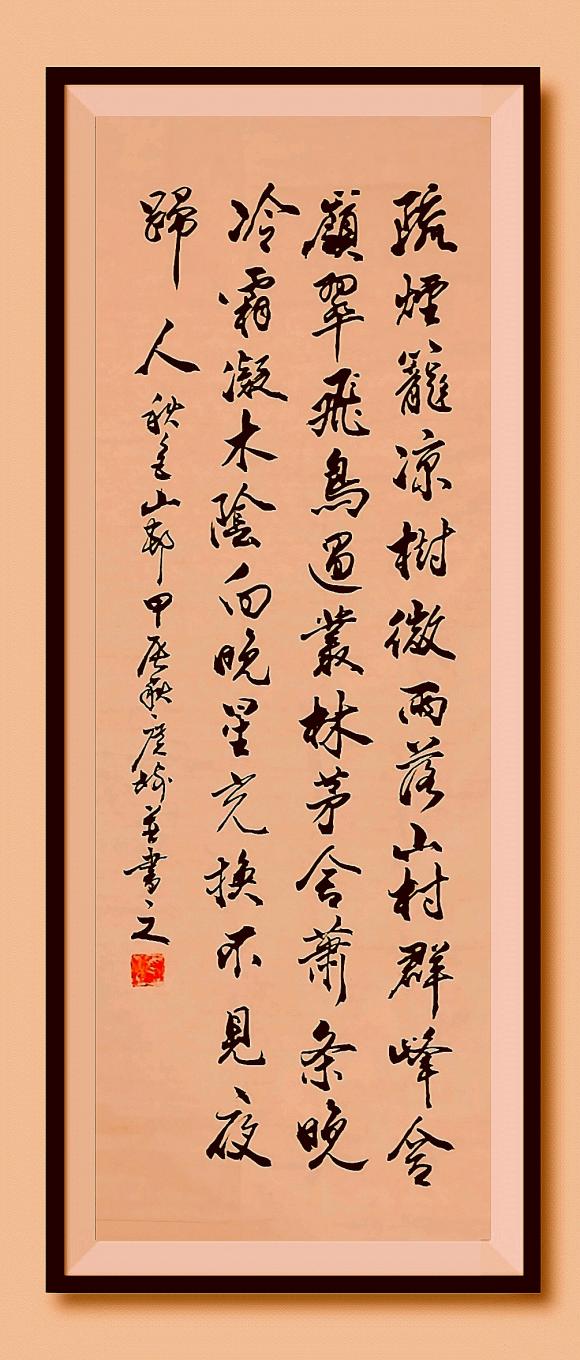 疏煙籠凉樹微雨落山村群峰含
翠飛鳥過叢林茅舍蕭条晚
冷霜凝木陰向晚星換不見夜
歸人 秋色山邨 甲辰秋 書之